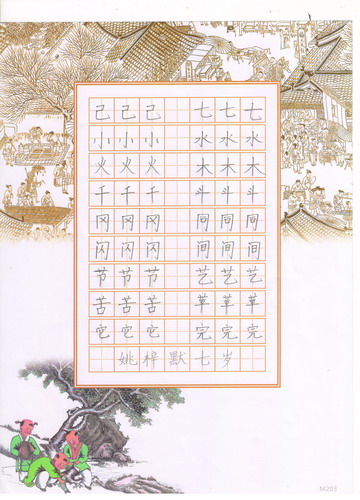 己己己 七七七
小小小 水水水
火火火 木木木
千千千 斗斗斗
冈冈冈 同同同
闪闪闪 间间间
节节节 艺艺艺
苦苦苦 草草草
它它它 完完完
姚梓默七岁
M203